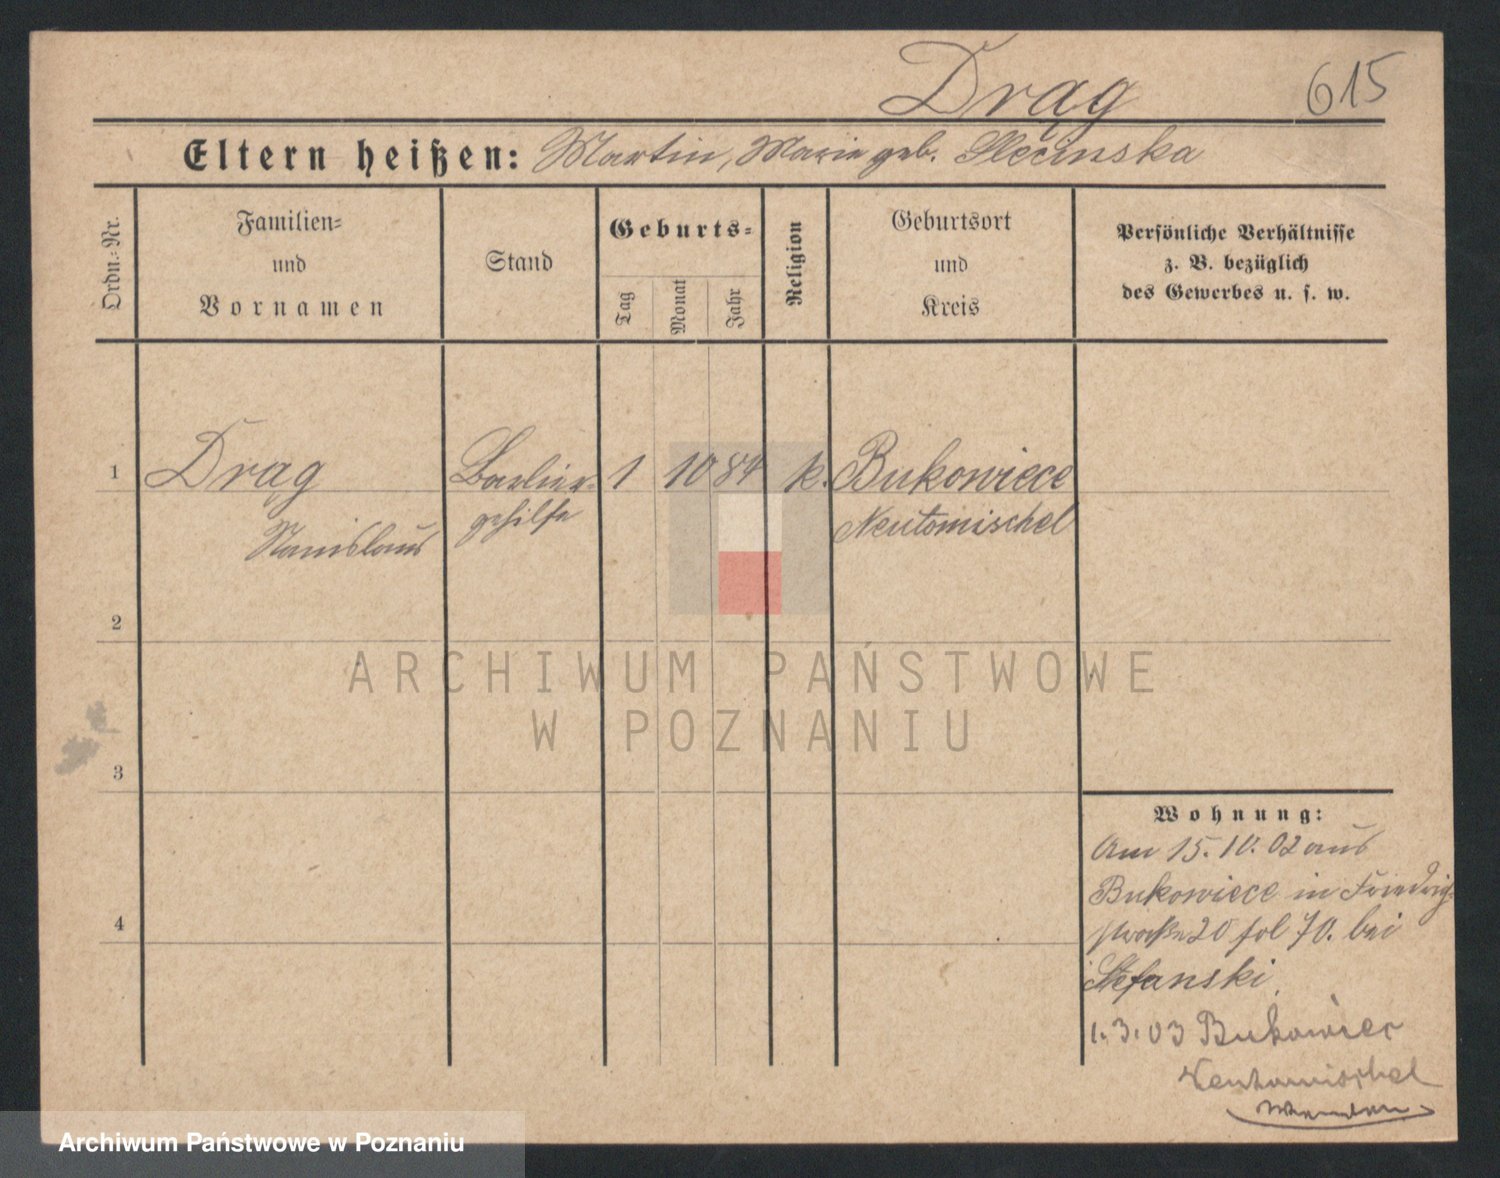 Drąg
615
Eltern heißen: Martin, Marie geb. Slecinska
Ordn.-Nr.
Familien-
und
Vornamen
Stand
Geburts-
Tag
Monat
Jahr
Religion
Geburtsort
und
Kreis
Persönliche Verhältnisse
z. B. bezüglich
des Gewerbes u. s. w.
1
Drąg
Stanislaus
Barbier-
gehilfe
1
10
84
k.
Bukowiece
Neutomischel
2
3
4
Wohnung:
Am 15.10.02 aus
Bukowiece in Friedrich-
straße 20 fol 70. bei
Stefanski.
1.3.03 Bukowiec
Neutomischel
ARCHIWUM PAŃSTWOWE
W POZNANIU
Archiwum Państwowe w Poznaniu